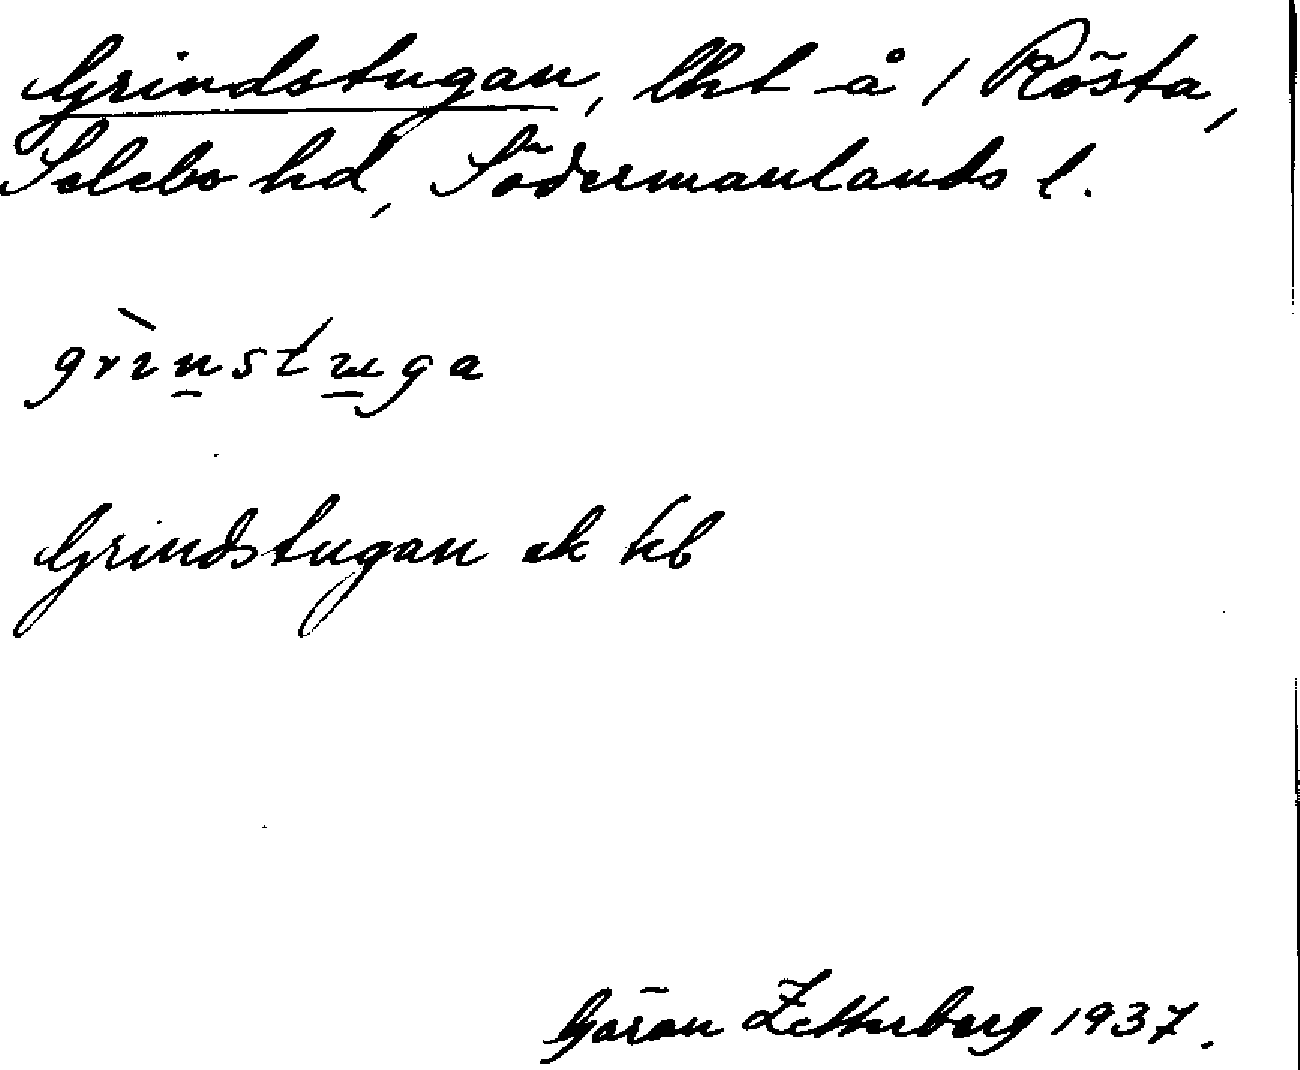 Grindstugan, lht å 1 Rösta,
Selebo hd, Södermanlands l.
grìnstuga
Grindstugan ek kb
Göran Zetterberg 1937.